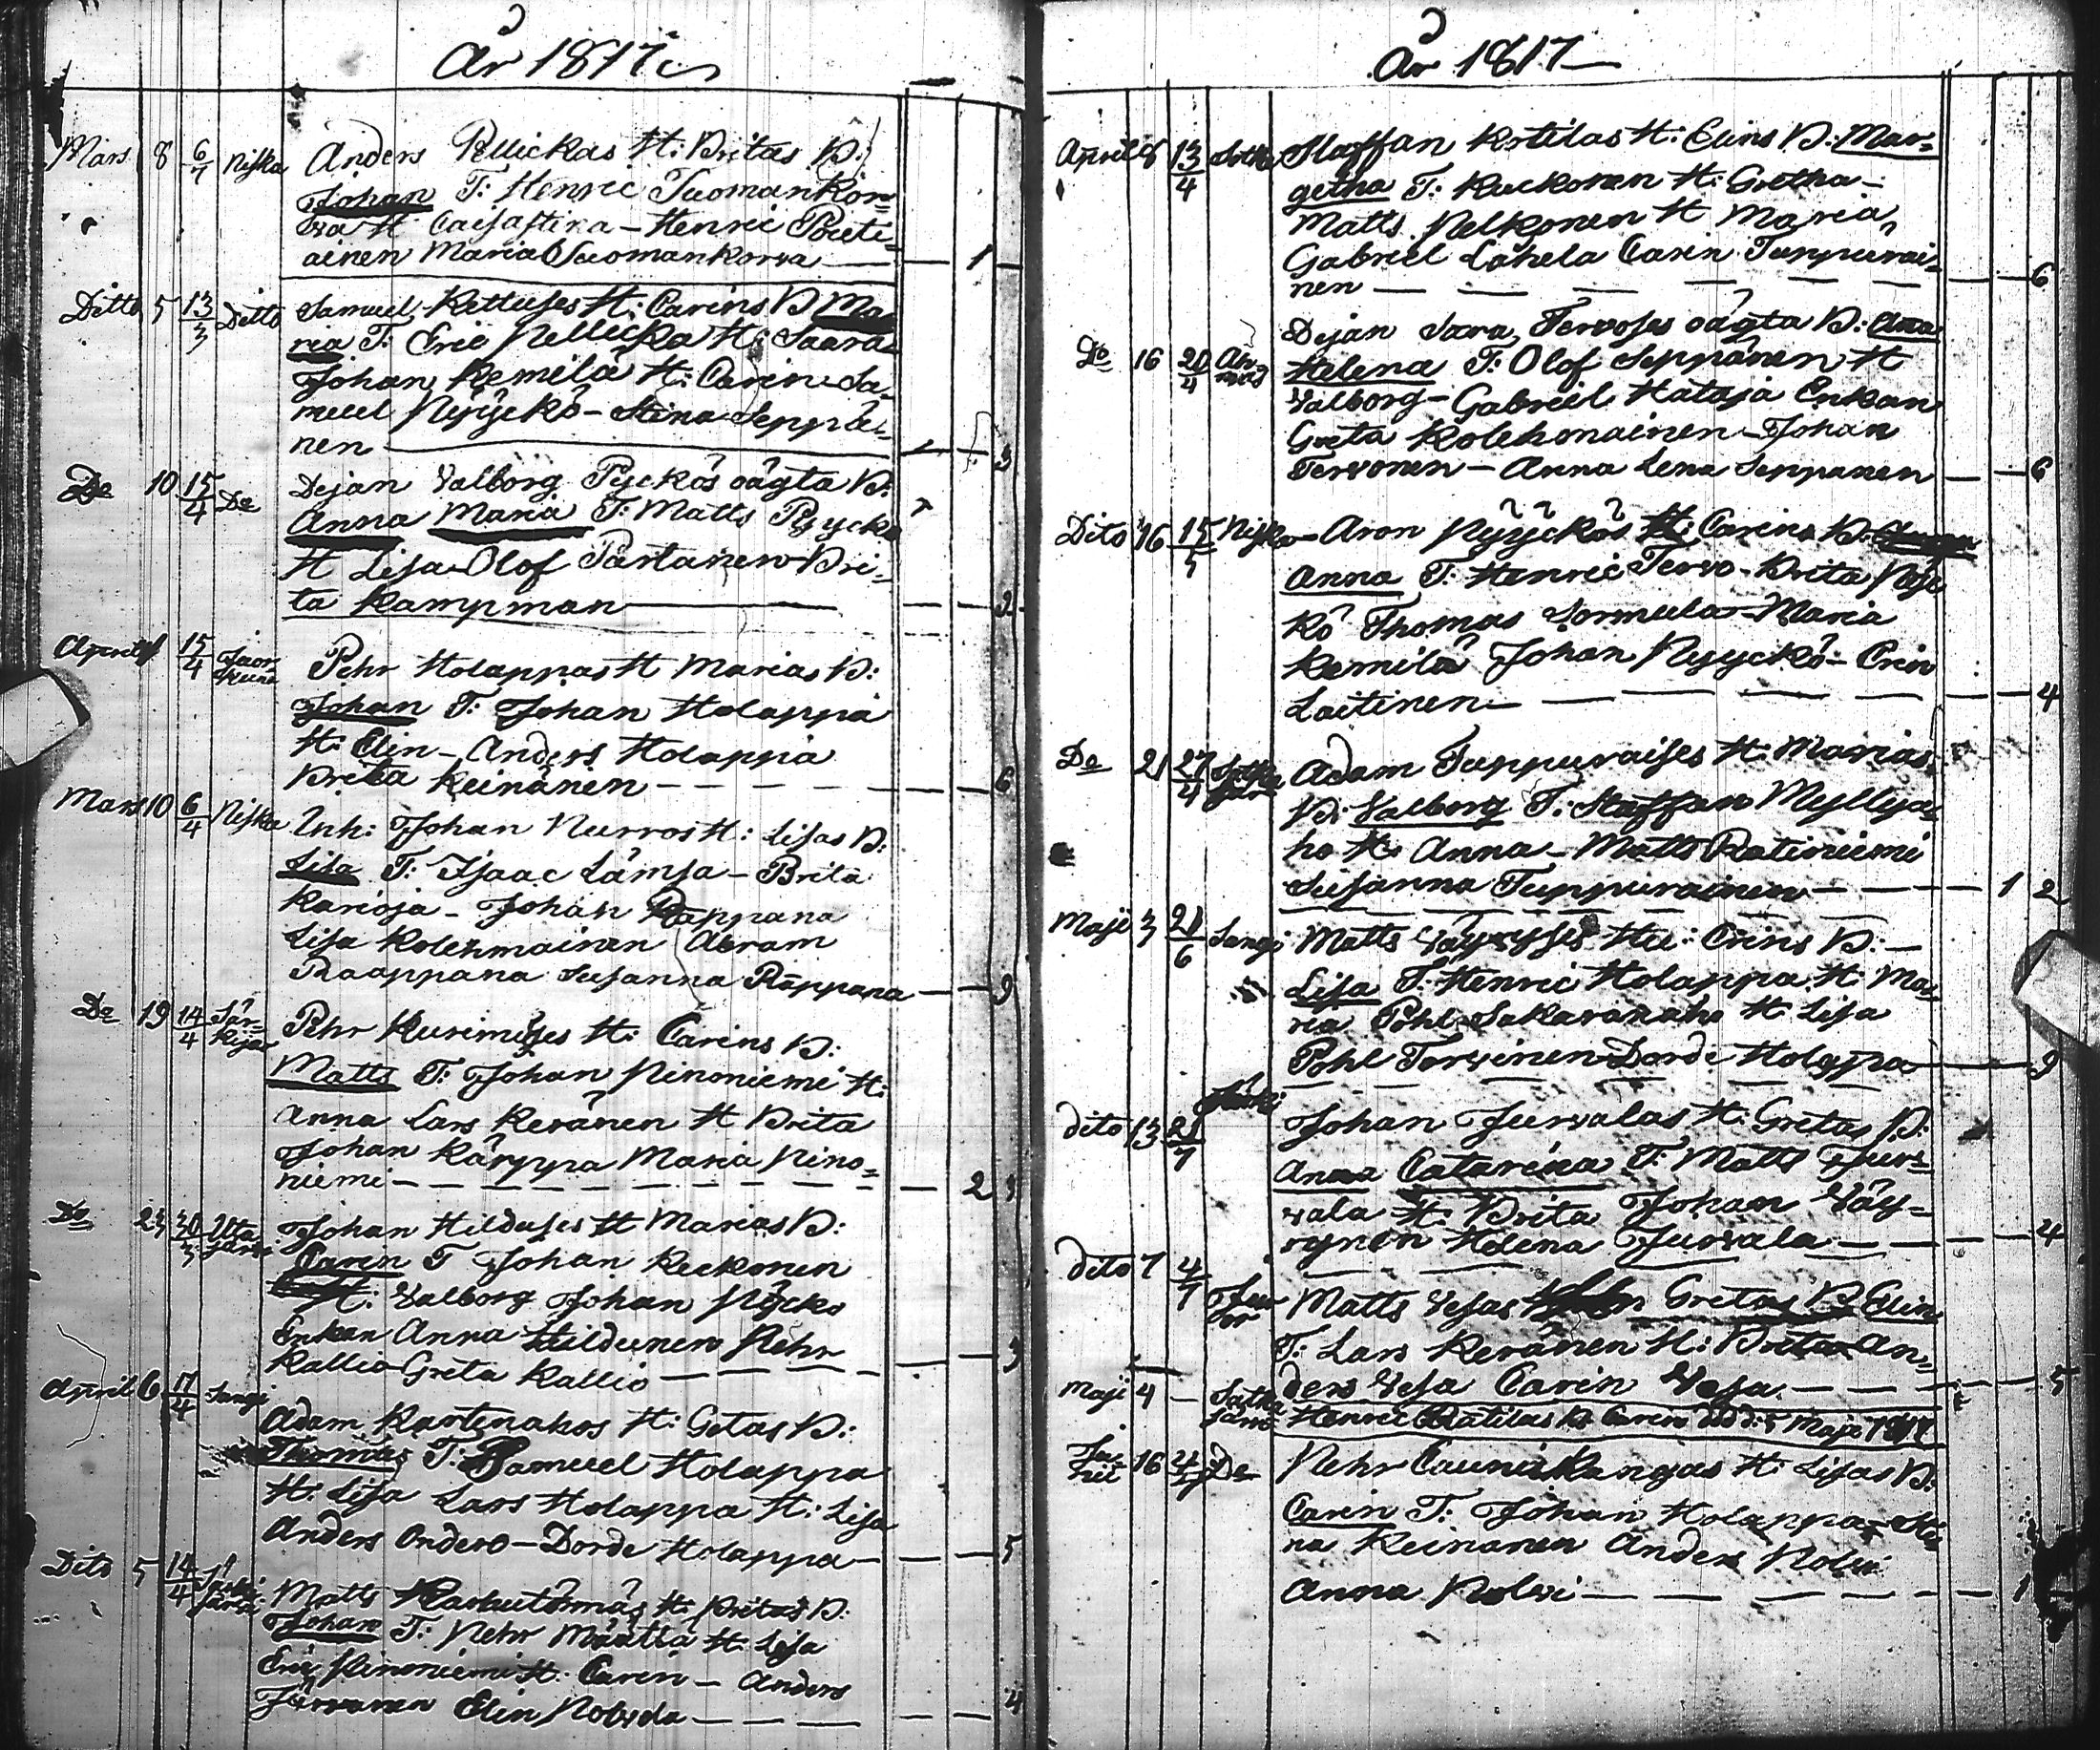 År 1817
Mars 8 6/7 Niska Anders Pellickas H: Britas B:
Johan T: Henric Tuomankor=
wa H Caisastina - Henric Poeti=
ainen Maria Tuomankorwa — 1
Ditto 5 13/3 Ditto Samuel Kettuses H: Carins B Ma
ria T: Eric Pellicka H: Saara
Johan Kemilä H: Carin Sa=
muel Pÿÿckö - Stina Seppä=
nen — 3
Do 10 15/4 Do Dejan Valborg Pyckös oägta B:
Anna Maria T: Matts Pyycko
H Lisa Olof Partanen Bri=
ta Kampman — 2
April 15/4 Pehr Holappas H Marias B:
Johan T: Johan Holappa
H: Elin - Anders Holappa
Brita Keinänen — 6
Mars 10 6/4 Niska Inh: Johan Nurros H: Lisas B:
Lisa T: Isaac Lämsa - Brita
Karioja - Johan Rappana
Lisa Kolehmainen Abram
Raappana Susanna Räppana — 9
Do 19 14/4 Sär=
kijär Pehr Kurimises H: Carins B:
Matts T: Johan Ninoniemi H:
Anna Lars Keränen H Brita
Johan Kärppa Maria Nino=
niemi — 2
Do 23 30/3 Uta
järvi Johan Hilduses H Marias B:
Caren T Johan Keckonen
H: Valborg Johan Pÿcko
Enkan Anna Hildunen Pehr
Kallio Greta Kallio — 3
April 6 17/4 Sangi
Adam Karfinahos H: Getas B:
Thomas T: Samuel Holappa
H: Lisa Lars Holappa H: Lisa
Anders Anders - Dorde Holappa — 5
Dito 5 14/4 Matts Karhutörmäs H: Britas B:
Johan T: Pehr Määttä H: Lisa
Eric Ninoniemi H: Carin - Anders
Elin — 4
År 1817
April 8 13/4 Sotka Staffan Kotilas H: Elins B: Mar=
getha T: Kuckonen H: Gretha -
Matts Pelkonen H Maria
Gabriel Lähela Carin Tuppurai=
nen — 6
Do 16 20/4 Dejan Sara Tervoses oägta B: Ana
Helena T: Olof Seppänen H
Valborg - Gabriel Hataja Enkan
Greta Kolehmainen - Johan
Tervonen - Anna Lena Seppanen — 6
Dito 16 15/5 Niska Aron Pÿÿckös H: Carins B:
Anna T: Henric Tervo - Brita Pÿc
kö Thomas Sormula Maria
Kemilä Johan Pyyckö - Crein
Laitinen — 4
Do 21 27/4 Adam Tuppuraises H: Marias
B: Valborg T: Staffan Myllya=
ho H: Anna - Matts Ratiniemi
Susanna Tuppurainen — 1 2
Maji 3 21/6 Sangi Matts Väyryses Hu: Crins B: —
Lisa T: Henric Holappa H: Ma=
ria Pohl Sakaranaho H Lisa
Pohl Torvinen Dorde Holappa — 9
dito 13 21/7 Johan Jurvalas H: Gretas B:
Anna Catarina T: Matts Jur=
vala H: Brita Johan Väy=
rynen Helena Jurvala — 4
dito 7 4/7 Matts Vesas Gretas B Elin
T: Lars Keränen H: Brita An=
ders Vesa Carin Vesa — 5
Maji 4 — Henric Ratilas B Caren död d: 5 Maji 1817
Ju=
nii 16 4/7 Do Pehr Caunis Kangas H: Lisas B:
Carin T: Johan Holappa - Sti=
na Keinanen Anders Nolvi
Anna Nolvi — 1